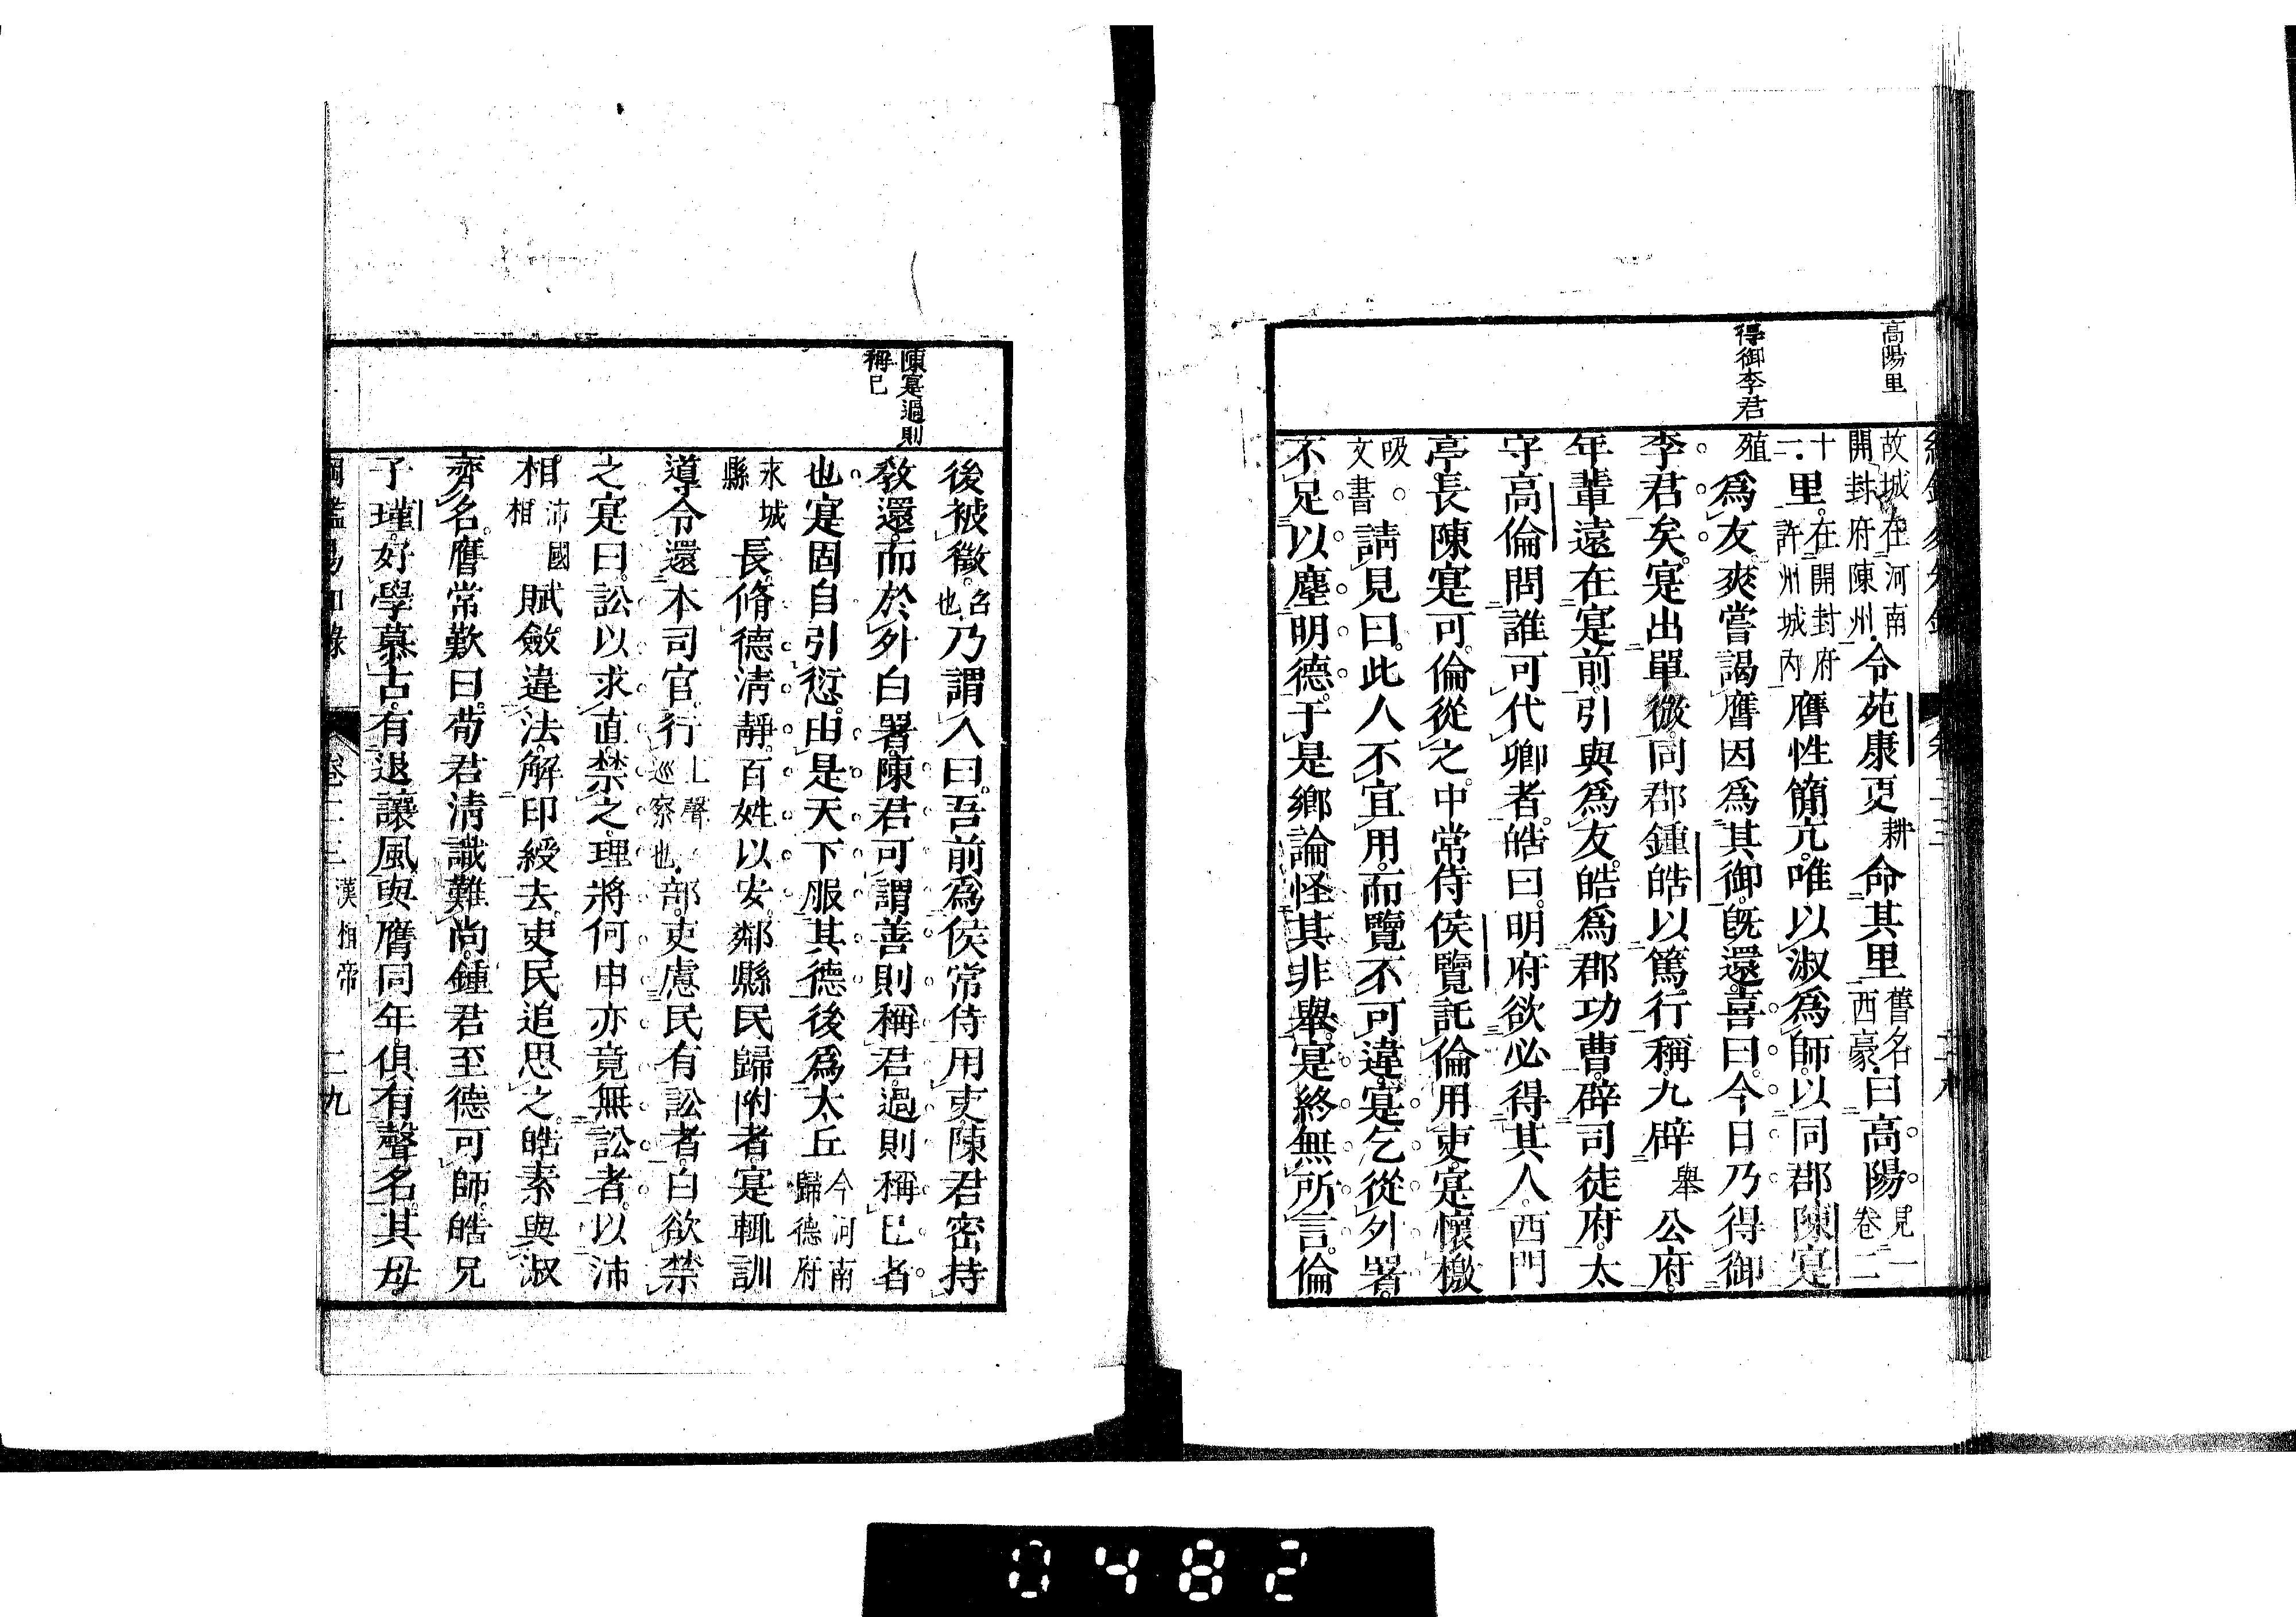 高陽里
得御李君
故城在河南
開封府陳州
令苑康更
耕
命其里
舊名
西豪
曰高陽
見一
卷二
十
二
里
在開封府
許州城內
膺性簡亢唯以淑爲師以同郡陳寔
殖
爲友爽嘗謁膺因爲其御既還喜曰今日乃得御
李君矣寔出單微同郡鍾皓以篤行稱九辟
舉
公府
年輩遠在寔前引與爲友皓爲郡功曹辟司徒府太
守高倫問誰可代卿者皓曰明府欲必得其人西門
亭長陳寔可倫從之中常侍侯覽託倫用吏寔懷檄
吸
文書
請見曰此人不宜用而覽不可違寔乞從外署
不足以塵明德于是鄉論怪其非舉寔終無所言倫
陳寔過則
稱己
後被徵
名
也
乃謂人曰吾前爲侯常侍用吏陳君密持
教還而於外白署陳君可謂善則稱君過則稱己者
也寔固自引愆由是天下服其德後爲太丘
今河南
歸德府
永城
縣
長脩德清靜百姓以安鄰縣民歸附者寔輒訓
導令還本司官行
上聲
巡察也
部吏慮民有訟者白欲禁
之寔曰訟以求直禁之理將何申亦竟無訟者以沛
相
沛國
相
賦斂違法解印綬去吏民追思之皓素與淑
齊名膺常歎曰荀君清識難尚鍾君至德可師皓兄
子瑾好學慕古有退讓風與膺同年俱有聲名其母
綱鑑易知錄 卷二三 漢桓帝 二九
0482